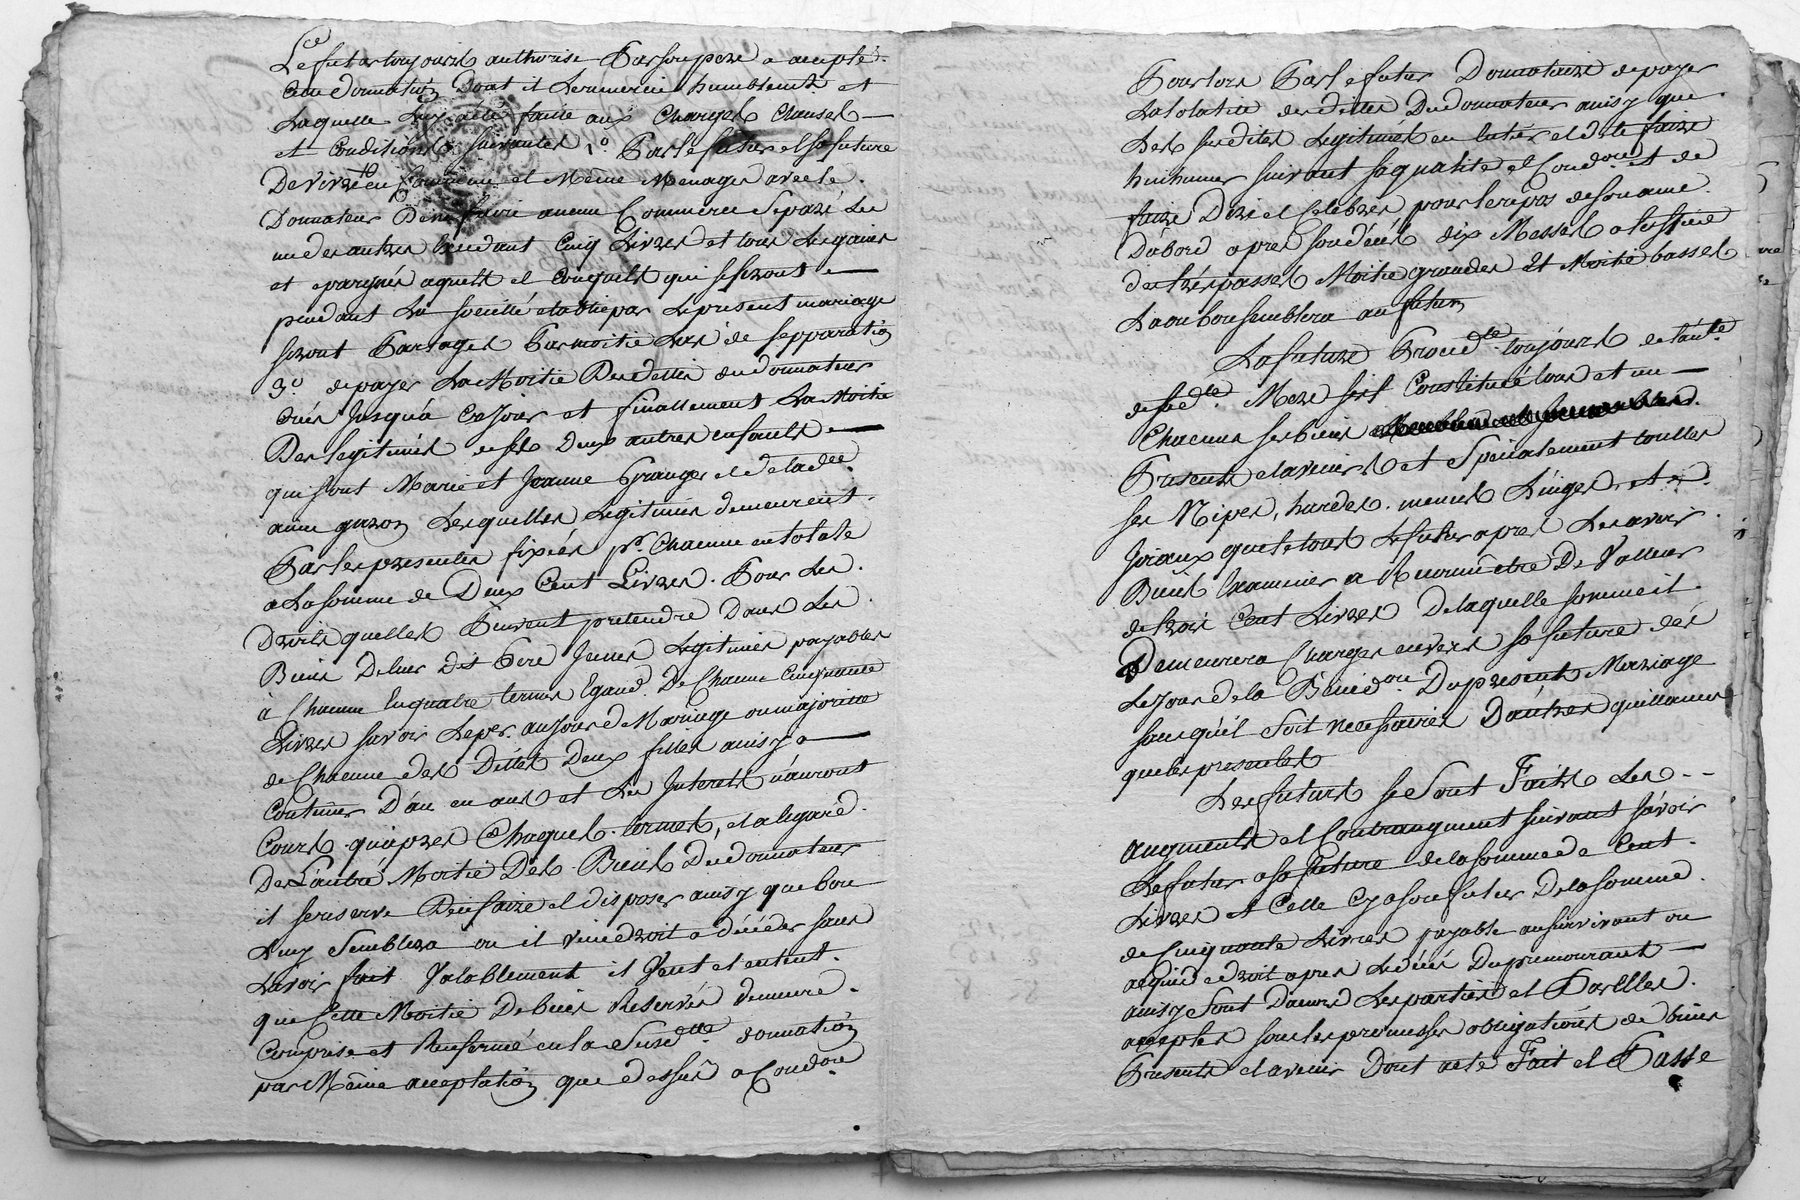 Le d. futur toujours authorise Par son pere a accepté
cette donnation Dont il Le remercie humblement et
Laquelle Luy a été faitte aux Charges Clauses
et Conditions Suivantes 1o Par le futur et Sa future
De vivre en Commun et Même Menage avec le
Donnateur Sans faire aucun Commerce Separé Les
uns des autres Pendant Cinq Livres et tous Les gains
et epargnés aquets et Conquets qui se feront
pendant La societté etablie par Le present mariage
seront Partages Par moitié Lors de sepparation
3o de payer La Moitié Des dettes du donnateur
Crées Jusqu'a Ce Jour et finallement La Moitié
Des Legitimes de ses Deux autres enfants
qui sont Marie et Jeanne Granger et de lad.ee
anne Lesquelles Legitimes demeurent
Par les presentes fixées pr. Chacune en totale
a La somme de Deux Cent Livres Pour Les
Droits quelles Peuvent pretendre Dans Les
Biens De leur dit Pere Jcelles Legitimes payables
à Chacune En quatre termes Egaud De Chacun Cinquante
Livres savoir Le per. au Jour de Mariage ou majorité
de Chacune des Dittes Deux filles ainsy a
Continuer D'an en an et Les Interets n'auront
Cours qu'apres Chaques termes, et a legard
De L'autre Moitié Des Biens Du donnateur
il se reserve D'en faire et disposer ainsy que bon
Luy Semblera ou il viendroit a décéder sans
L'avoir fait Valablement il Veut et entent
que Cette Moitié De biens Reservés demeure
Comprise et Renfermé en la Susd.tte donnation
par Même acceptation que dessus a Condon
Pour lors Par le futur Donnataire de payer
La totalité des dettes Du donnateur ainsy que
Les susdites Legitimes en entier et de le faire
hinhumer suivant sa qualité et Condon et de
faire Dire et Celebrer pour le repos de son ame
D'abord apres son décés dix Messes a loffice
des trépasses Moitié grandes Et Moitié basses
La ou bon semblera au futur
La future Procede toujours de l'aute.
de sad.te Mere sest Constitué tous et un
Chacuns ses biens
Presents et avenirs et Specialement touttes
ses Nipes, hardes, menus Linges, et
Joiaux que le tout Le futur apres Les avoir
Bien Examiner a Reconnu être De Valleur
de trois Cent Livres De laquelle somme il
Demeurera Charger envers sa future des
Le Jour de la Bened.on Du present Mariage
sans qu'il Soit necessaire D'autres quittances
que les presentes
Les futurs se Sont Faits Les
augments et Contraugment suivant savoir
Le futur a sa future de la somme de Cent
Livres et Celle Cy a son futur De la somme
de Cinquante Livres payable au survivant ou
a qui de droit apres Le décés Du premourant
ainsy Sont Daccord Les parties et Par Elles
acceptes sous les promesses obligations de biens
Presents et avenir Dont acte Fait et Passe